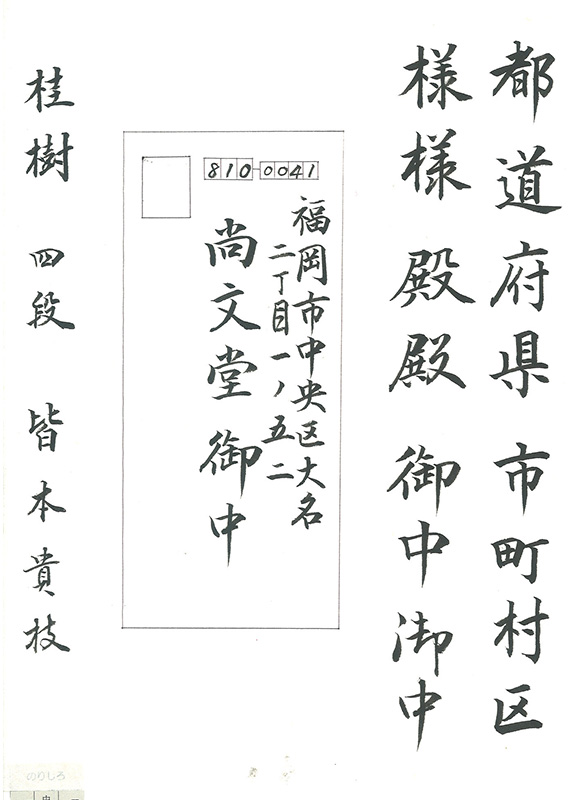 都道府県 市町村区
様様 殿殿 御中御中
810-0041
福岡市中央区大名
二丁目一ノ五二
尚文堂 御中
桂樹 四段 皆本貴枝
のりしろ